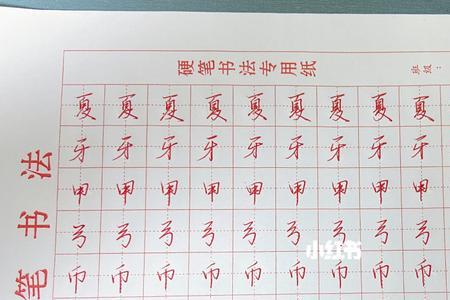 硬笔书法专用纸
班级：
笔书法
夏夏夏夏夏夏夏夏夏
牙牙牙牙牙牙牙牙牙
甲甲甲甲甲甲甲甲甲
弓弓弓弓弓弓弓弓弓
币币币币币币币币币
小红书